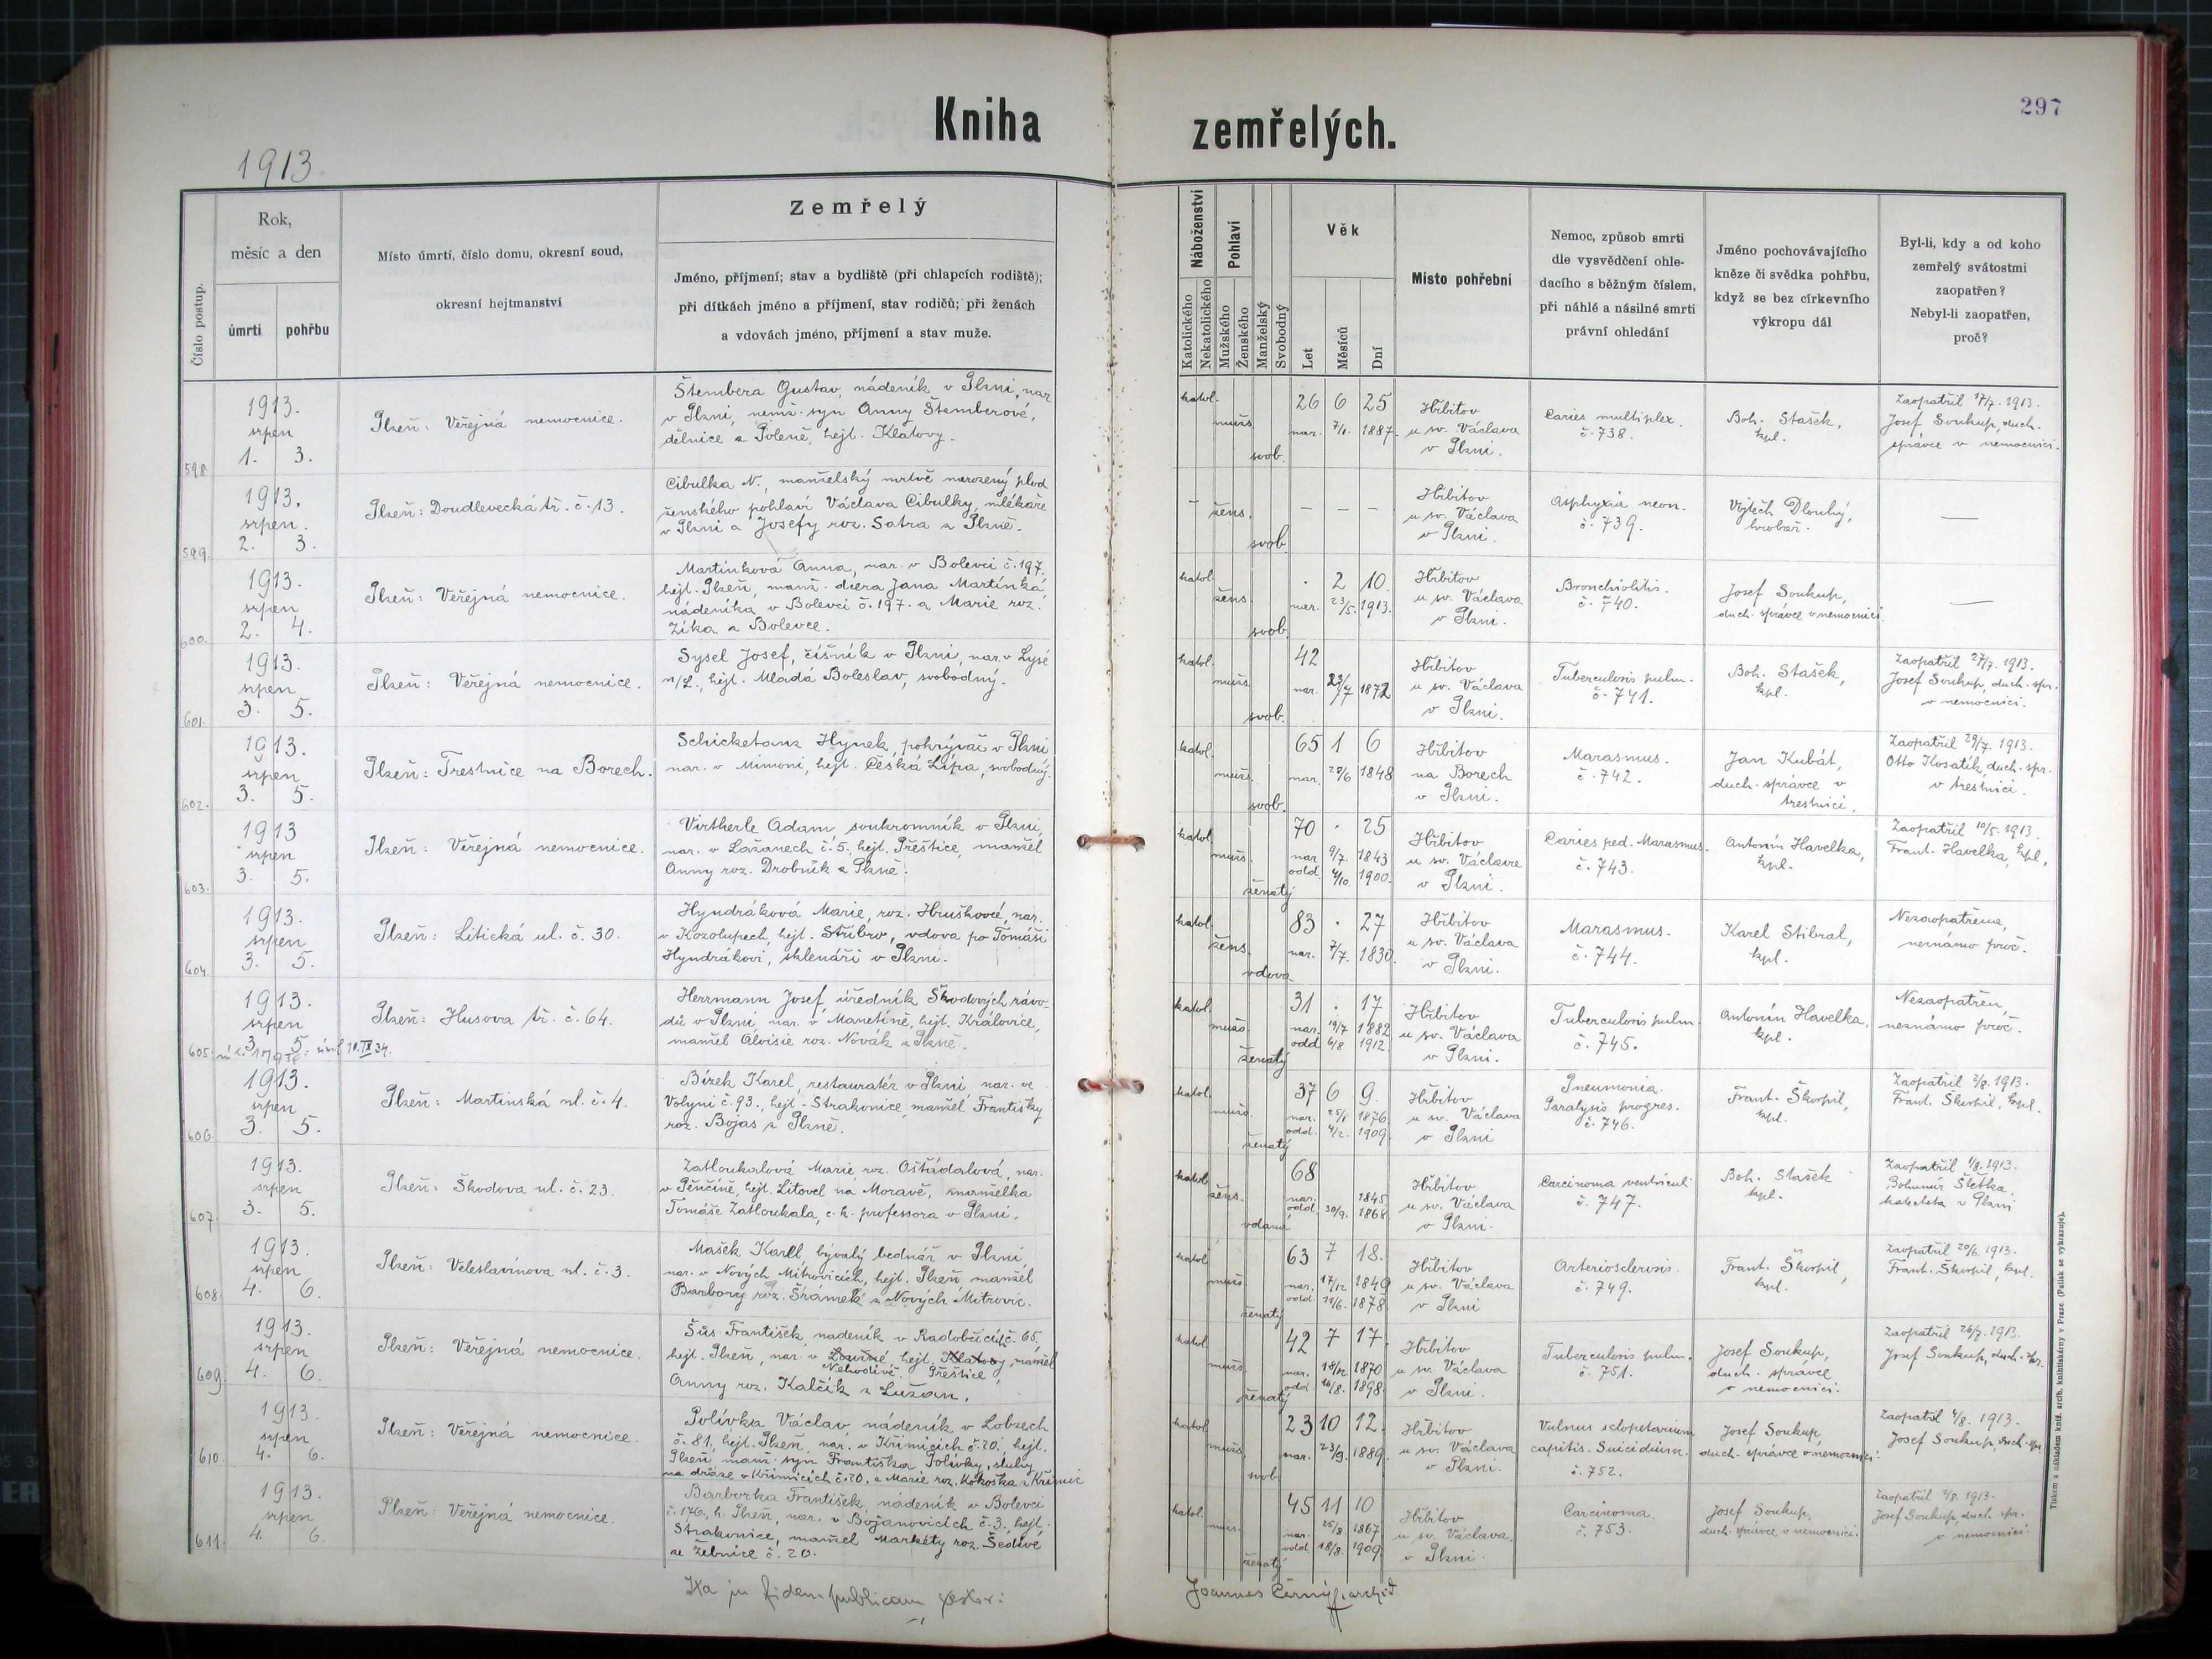 Kniha zemřelých.
297
1913.
Číslo postup.
Rok,
měsíc a den
úmrtí
pohřbu
Místo úmrtí, číslo domu, okresní soud,
okresní hejtmanství
Zemřelý
Jméno, příjmení; stav a bydliště (při chlapcích rodiště);
při dítkách jméno a příjmení, stav rodičů; při ženách
a vdovách jméno, příjmení a stav muže.
Náboženství
Katolického
Nekatolického
Pohlaví
Mužského
Ženského
Manželský
Svobodný
Věk
Let
Měsíců
Dní
Místo pohřební
Nemoc, způsob smrti
dle vysvědčení ohle-
dacího s běžným číslem,
při náhlé a násilné smrti
právní ohledání
Jméno pochovávajícího
kněze či svědka pohřbu,
když se bez církevního
výkropu dál
Byl-li, kdy a od koho
zemřelý svátostmi
zaopatřen?
Nebyl-li zaopatřen,
proč?
598.
1913.
srpen
1. 3.
Plzeň: Veřejná nemocnice.
Štembera Gustav, nádeník v Plzni, nar.
v Plzni, nemž. syn Anny Štemberové,
dělnice z Poleně, hejt. Klatovy.
katol.
mužs.
svob.
26 6 25
nar. 7/1. 1887.
Hřbitov
u sv. Václava
v Plzni.
Caries multiplex.
č. 738.
Boh. Stašek,
kpl.
Zaopatřil 17/7. 1913.
Josef Soukup, duch.
správce v nemocnici.
599.
1913.
srpen.
2. 3.
Plzeň: Doudlevecká tř. č. 13.
Cibulka N., manželský mrtvě narozený plod
ženského pohlaví Václava Cibulky, mlékaře
v Plzni a Josefy roz. Satra z Plzně.
–
žens.
svob.
– – –
Hřbitov
u sv. Václava
v Plzni.
Asphyxia neon.
č. 739.
Vojtěch Dlouhý,
hrobař.
—
600.
1913.
srpen
2. 4.
Plzeň: Veřejná nemocnice.
Martínková Anna, nar. v Bolevci č. 197.
hejt. Plzeň, manž. dcera Jana Martínka,
nádeníka v Bolevci č. 197. a Marie roz.
Zíka z Bolevce.
katol.
žens.
svob.
. 2 10.
nar. 23/5. 1913.
Hřbitov
u sv. Václava
v Plzni.
Bronchiolitis.
č. 740.
Josef Soukup,
duch. správce v nemocnici.
—
601.
1913.
srpen
3. 5.
Plzeň: Veřejná nemocnice.
Sysel Josef, číšník v Plzni, nar. v Lysé
n/L., hejt. Mladá Boleslav, svobodný.
katol.
mužs.
svob.
42
nar. 23/7 1872
Hřbitov
u sv. Václava
v Plzni.
Tuberculosis pulm.
č. 741.
Boh. Stašek,
kpl.
Zaopatřil 27/7. 1913.
Josef Soukup, duch. spr.
v nemocnici.
602.
1913.
srpen
3. 5.
Plzeň: Trestnice na Borech.
Schicketanz Hynek, pokrývač v Plzni
nar. v Mimoni, hejt. Česká Lípa, svobodný.
katol.
mužs.
svob.
65 1 6
nar. 29/6 1848
Hřbitov
na Borech
v Plzni.
Marasmus.
č. 742.
Jan Kubát,
duch. správce v
trestnici.
Zaopatřil 29/7. 1913.
Otto Kosatík, duch. spr.
v trestnici.
603.
1913
srpen
3. 5.
Plzeň: Veřejná nemocnice.
Virtherle Adam, soukromník v Plzni,
nar. v Lažanech č. 5., hejt. Přeštice, manžel
Anny roz. Drobník z Plzně.
katol.
mužs.
ženatý
70 . 25
nar. 9/7. 1843
odd. 4/10. 1900.
Hřbitov
u sv. Václava
v Plzni.
Caries ped. Marasmus.
č. 743.
Antonín Havelka,
kpl.
Zaopatřil 10/5. 1913.
Frant. Havelka, kpl.
604.
1913.
srpen
3. 5.
Plzeň: Litická ul. č. 30.
Hyndráková Marie, roz. Hruškové, nar.
v Kozolupech, hejt. Stříbro, vdova po Tomáši
Hyndrákovi, sklenáři v Plzni.
katol.
žens.
vdova
83 . 27
nar. 7/7. 1830.
Hřbitov
u sv. Václava
v Plzni.
Marasmus.
č. 744.
Karel Stibral,
kpl.
Nezaopatřena,
neznámo proč.
605.
1913.
srpen
3. 5.
Plzeň: Husova tř. č. 64.
Herrmann Josef, úředník Škodových závo-
dů v Plzni, nar. v Manetíně, hejt. Kralovice,
manžel Aloisie roz. Novák z Plzně.
katol.
mužs.
ženatý
31 . 17
nar. 19/7 1882
odd. 6/8 1912.
Hřbitov
u sv. Václava
v Plzni.
Tuberculosis pulm.
č. 745.
Antonín Havelka,
kpl.
Nezaopatřen,
neznámo proč.
606.
1913.
srpen
3. 5.
Plzeň: Martinská ul. č. 4.
Bízek Karel, restauratér v Plzni, nar. ve
Volyni č. 93., hejt. Strakonice, manžel Františky
roz. Bojas z Plzně.
katol.
mužs.
ženatý
37 6 9.
nar. 25/1 1876.
odd. 4/2. 1909.
Hřbitov
u sv. Václava
v Plzni
Pneumonia.
Paralysis progres.
č. 746.
Frant. Škorpil,
kpl.
Zaopatřil 2/8. 1913.
Frant. Škorpil, kpl.
607.
1913.
srpen
3. 5.
Plzeň: Škodova ul. č. 23.
Zatloukalová Marie, roz. Ošťádalová, nar.
v Pěnčíně, hejt. Litovel na Moravě, manželka
Tomáše Zatloukala, c. k. professora v Plzni.
katol.
žens.
vdaná
68
nar. 1845
odd. 30/9. 1868
Hřbitov
u sv. Václava
v Plzni.
Carcinoma ventriculi
č. 747.
Boh. Stašek
kpl.
Zaopatřil 1/8. 1913.
Bohumír Štětka,
katecheta v Plzni
608.
1913.
srpen
4. 6.
Plzeň: Veleslavínova ul. č. 3.
Mašek Karel, bývalý bednář v Plzni,
nar. v Nových Mitrovicích, hejt. Plzeň, manžel
Barbory roz. Šrámek z Nových Mitrovic.
katol.
mužs.
ženatý
63 7 18.
nar. 17/12 1849
odd. 11/6. 1878.
Hřbitov
u sv. Václava
v Plzni
Arteriosclerosis.
č. 749.
Frant. Škorpil,
kpl.
Zaopatřil 20/6. 1913.
Frant. Škorpil, kpl.
609
1913.
srpen
4. 6.
Plzeň: Veřejná nemocnice.
Šůs František, nádeník v Radobčicích č. 65,
hejt. Plzeň, nar. v hejt. Klatovy, manžel
Nehodivě, Přeštice,
Anny roz. Kalčík z Lužan.
katol.
mužs.
ženatý
42 7 17.
nar. 18/12 1870
odd. 16/8. 1898.
Hřbitov
u sv. Václava
v Plzni.
Tuberculosis pulm.
č. 751.
Josef Soukup,
duch. správce
v nemocnici.
Zaopatřil 26/7. 1913.
Josef Soukup, duch. spr.
610.
1913.
srpen
4. 6.
Plzeň: Veřejná nemocnice.
Polívka Václav, nádeník v Lobzech
č. 81., hejt. Plzeň, nar. v Křimicích č. 20., hejt.
Plzeň, manž. syn Františka Polívky, sluhy
na dráze v Křimicích č. 20. a Marie roz. Kokoška z Křimic
katol.
mužs.
svob.
23 10 12.
nar. 23/9. 1889.
Hřbitov
u sv. Václava
v Plzni.
Vulnus sclopetarium
capitis. Suicidium.
č. 752.
Josef Soukup,
duch. správce v nemocnici.
Zaopatřil 4/8. 1913.
Josef Soukup, duch. spr.
611.
1913.
srpen
4. 6.
Plzeň: Veřejná nemocnice.
Barborka František, nádeník v Bolevci
č. 176., h. Plzeň, nar. v Bojanovicích č. 3., hejt.
Strakonice, manžel Markéty roz. Šedivé
ze Žebnice č. 20.
katol.
mužs.
ženatý
45 11 10
nar. 25/8. 1867.
odd. 18/8. 1909.
Hřbitov
u sv. Václava
v Plzni.
Carcinoma.
č. 753.
Josef Soukup,
duch. správce v nemocnici.
Zaopatřil 2/8. 1913.
Josef Soukup, duch. spr.
v nemocnici.
Ita in fidem publicam testor:
Joannes Černý, archid.
Tiskem a nákladem kníž. arcib. knihtiskárny v Praze. (Padlek se vykazuje).